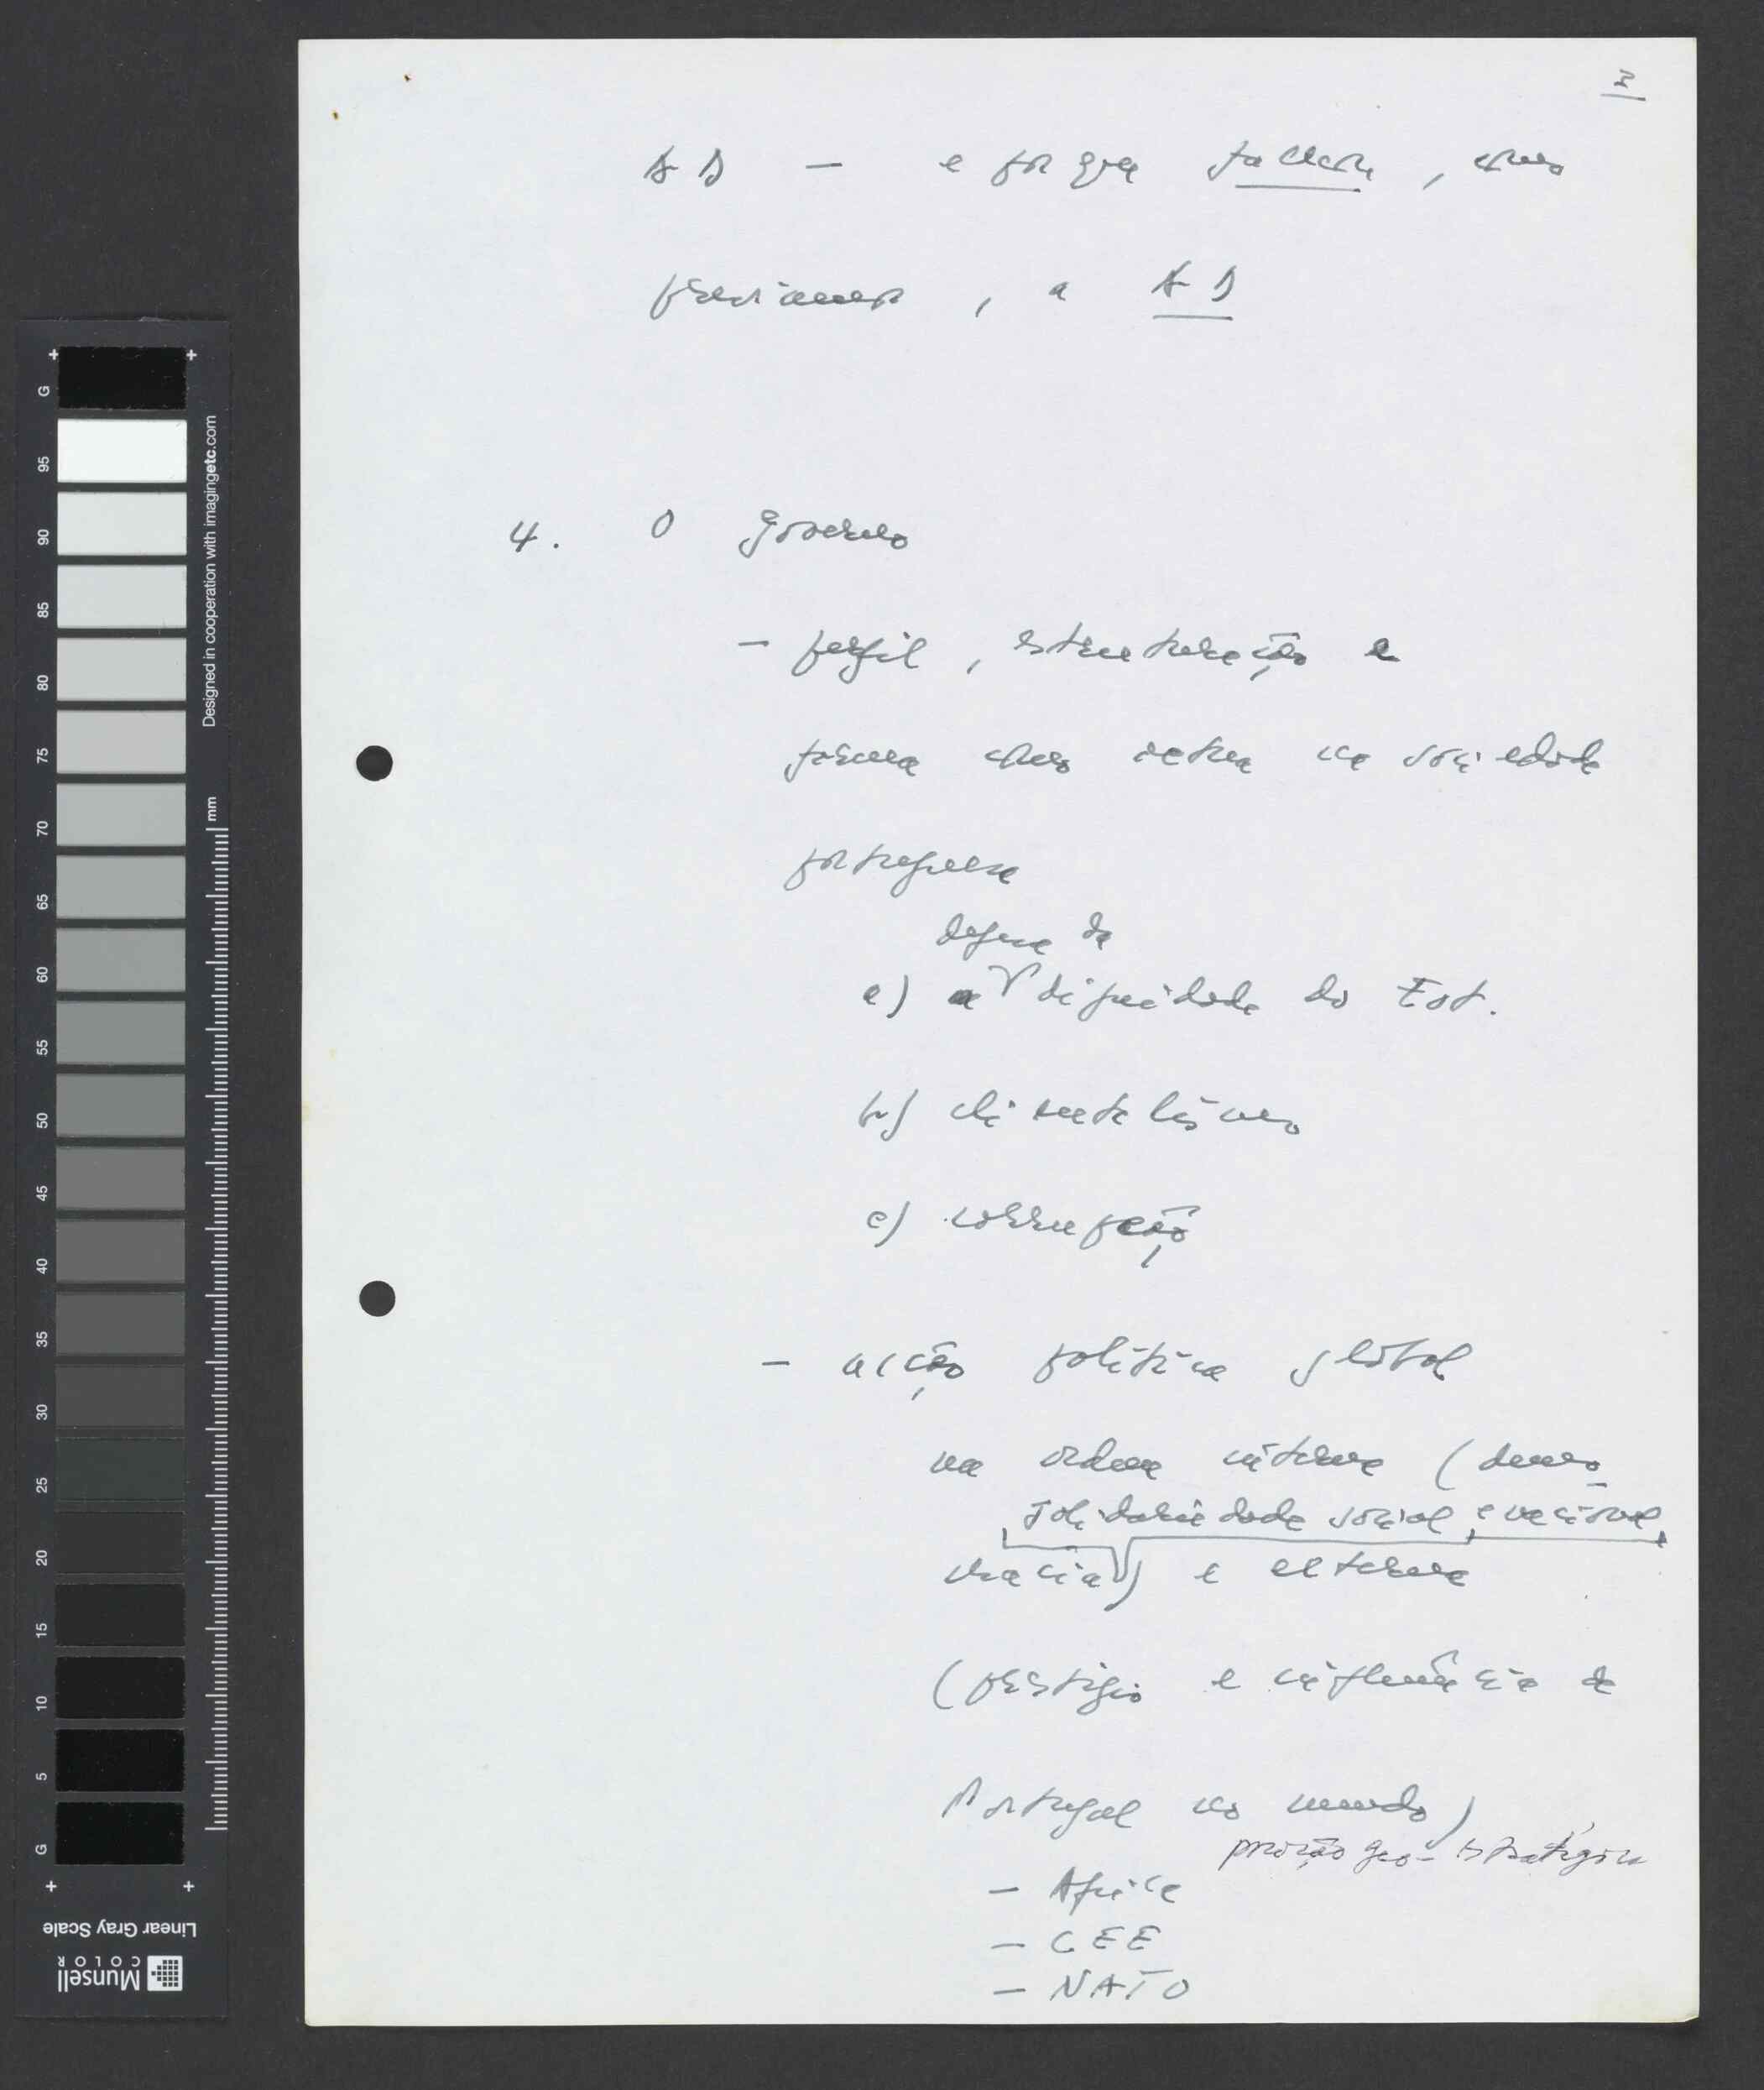 AD — e por que falhou, como
previmos, a AD
4. O governo
— perfil, estruturação e
forma como actua na sociedade
portuguesa
defesa da
a) a dignidade do Est.
b) clientelismo
c) corrupção
— acção política global
na ordem interna (demo-
solidariedade social, e nacional,
cracia) e externa
(prestígio e influência de
Portugal no mundo)
posição geo-estratégica
— Africa
— CEE
— NATO
G
95
90
85
80
75
70
65
60
55
50
45
40
35
30
25
20
15
10
5
G
Designed in cooperation with imagingetc.com
mm
Linear Gray Scale
Munsell
COLOR